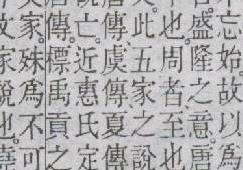 忘始故以爲
盛隆之意唐
也周者至也
此五家之說
傳虞傳夏傳
亡近惠氏定
傳標禹貢之
家殊爲不可
家說也